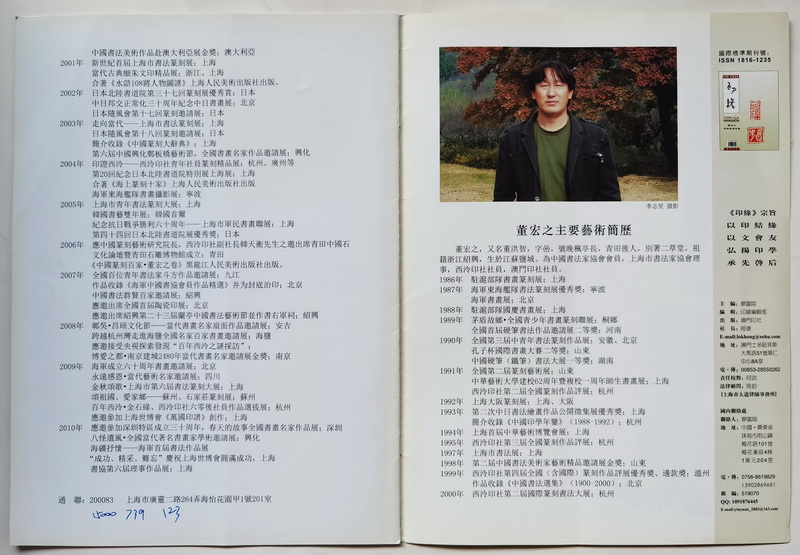 中國書法美術作品赴澳大利亞展金獎；澳大利亞
2001年 新世紀首屆上海市書法篆刻展；上海
當代古典細朱文印精品展；浙江、上海
合著《水滸108將人物圖譜》上海人民美術出版社出版。
2002年 日本北陸書道院第三十七回篆刻展優秀賞；日本
中日邦交正常化三十周年紀念中日書畫展；北京
日本隨風會第十七回篆刻邀請展；日本
2003年 走向當代——上海市書法篆刻展；上海
日本隨風會第十八回篆刻邀請展；日本
簡介收錄《中國篆刻大辭典》；上海
第六屆中國興化鄭板橋藝術節、全國書畫名家作品邀請展；興化
2004年 印證西泠——西泠印社青年社員篆刻精品展；杭州、廣州等
第20回紀念日本北陸書道院特別展上海展；上海
合著《海上篆刻十家》上海人民美術出版社出版
海軍東海艦隊書畫攝影展；寧波
2005年 上海市青年書法篆刻大展；上海
韓國書藝雙年展；韓國首爾
紀念抗日戰爭勝利六十周年——上海市軍民書畫聯展；上海
第四十四回日本北陸書道院展優秀獎；日本
2006年 應中國篆刻藝術研究院、西泠印社副社長韓天衡先生之邀出席青田中國石
文化論壇暨青田石雕博物館成立；青田
《中國篆刻百家·董宏之卷》黑龍江人民美術出版社出版。
2007年 全國百位青年書法家斗方作品邀請展；九江
作品收錄《海軍中國書協會會員作品精選》并为封底治印；北京
中国書法群賢百家邀請展；紹興
應邀出席全國首屆陶瓷印展；北京
應邀出席紹興第二十三屆蘭亭中國書法藝術節並作書右軍祠；紹興
2008年 鄣吳·昌碩文化節——當代書畫名家扇面作品邀請展；安吉
跨越杭州灣走進海鹽全國名家百家書畫邀請展；海鹽
應邀接受央視探索發現“百年西泠之謎探訪”；
博愛之都·南京建城2480年當代書畫名家邀請展金獎；南京
2009年 海軍成立六十周年書畫邀請展；北京
永遠感恩·當代藝術名家邀請展；四川
金秋頌歌·上海市第六屆書法篆刻大展；上海
頌祖國、愛家鄉——蘇州、石家莊篆刻展；蘇州
百年西泠·金石緣、西泠印社六零後社員作品選拔展；杭州
應邀參加上海世博會《萬國印譜》創作；上海
2010年 應邀參加深圳特區成立三十周年，春天的故事全國書畫名家作品展；深圳
八怪遺風·全國當代著名書畫家學術邀請展；興化
海疆抒懷——海軍首屆書法作品展
“成功、精采、難忘”慶祝上海世博會圓滿成功，上海
書協第六屆理事作品展；上海
通　聯：200083　上海市廣靈二路264弄海怡花園甲1號201室
779 123
李志堅 攝影
董宏之主要藝術簡歷
董宏之，又名董洪智，字嵒，號晚楓亭長，青田後人，別署二草堂，祖
籍浙江紹興，生於江蘇鹽城。為中國書法家協會會員，上海市書法家協會理
事，西泠印社社員，澳門印社社員。
1986年 駐滬部隊書畫篆刻展；上海
1987年 海軍東海艦隊書法篆刻展優秀獎；寧波
海軍書畫展；北京
1988年 駐滬部隊國慶書畫展；上海
1989年 茅盾故鄉·全國青少年書畫篆刻聯展；桐鄉
全國首屆硬筆書法作品邀請展二等獎；河南
1990年 全國第二屆中青年書法篆刻作品展，安徽、北京
孔子杯國際書畫大賽二等獎；山東
中國硬筆（鐵筆）書法大展一等獎；湖南
1991年 全國第二屆篆刻藝術展；山東
中華藝術大學建校62周年暨複校一周年師生書畫展；上海
西泠印社第二屆全國篆刻作品評展；杭州
1992年 上海大阪篆刻展；上海、大阪
1993年 第二次中日書法繪畫作品公開徵集展優秀獎；上海
簡介收錄《中國印學年鑒》（1988-1992）；杭州
1994年 上海首屆中華藝術博覽會展；上海
1995年 西泠印社第三屆全國篆刻作品評展；杭州
1997年 上海市書法展；上海
1998年 第二屆中國書法美術家藝術精品邀請展金獎；山東
1999年 西泠印社第四屆全國（含國際）篆刻作品評展優秀獎、邊款獎；溫州
作品收錄《中國書法選集》（1900-2000）；北京
2000年 西泠印社第二屆國際篆刻書法大展；杭州
國際標準期刊號：
ISSN 1816-1235
《印緣》宗旨
以印結緣
以文會友
弘揚印學
承先啓后
出 版：澳門印社
E-mail:lokhong@yahoo.com
電·傳：00853-28550262
[上海市大道律師事務所]
國內聯絡處
地 址：中國·廣東省
珠海市前山鎮
1單元204室
電·傳：0756-8619829
13902869681
郵 編：519070
QQ: 1091876445
E-mail:yinyuan_2003@163.com